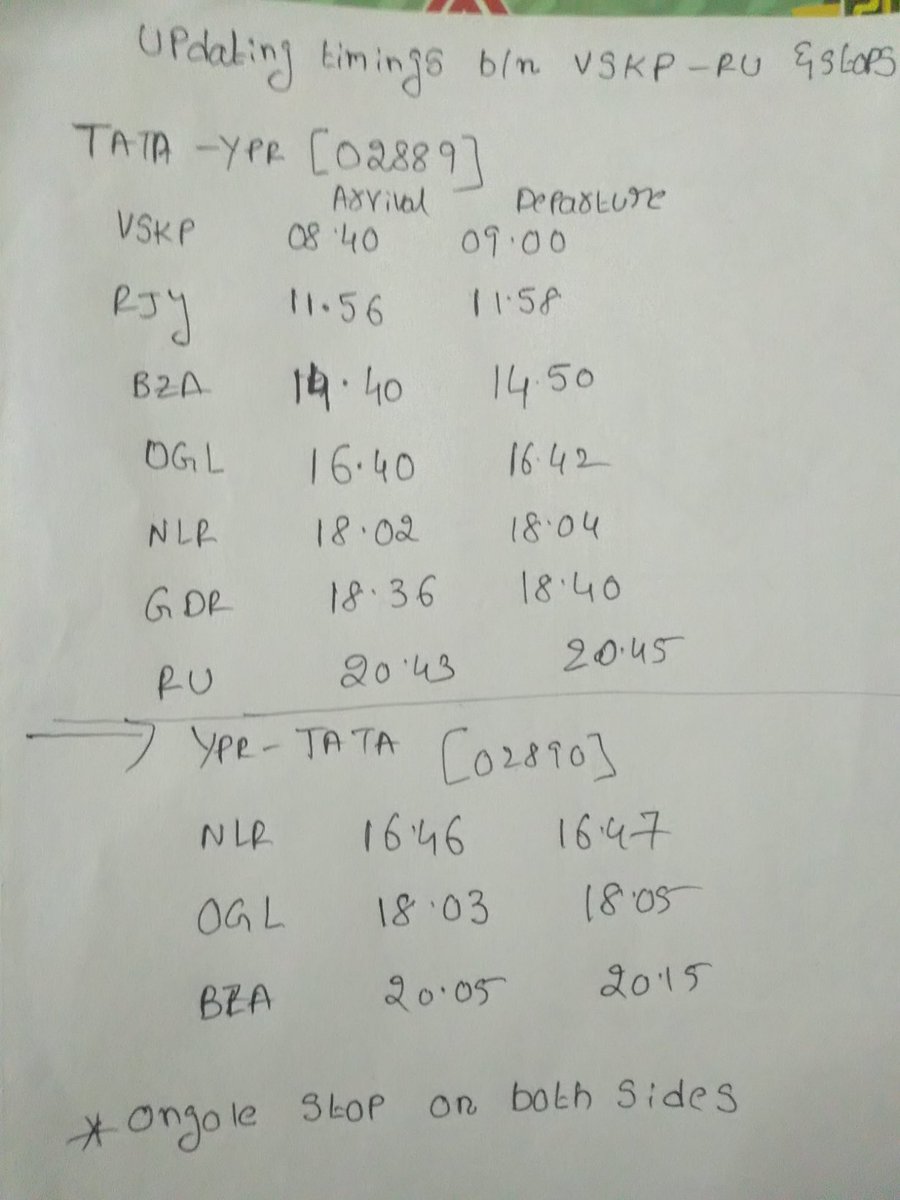 Updating timings b/n VSKP-RU & stops
TATA-YPR [02889]
Arrival Departure
VSKP 08.40 09.00
RJY 11.56 11.58
BZA 14.40 14.50
OGL 16.40 16.42
NLR 18.02 18.04
GDR 18.36 18.40
RU 20.43 20.45
YPR-TATA [02890]
NLR 16.46 16.47
OGL 18.03 18.05
BZA 20.05 20.15
* Ongole stop on both sides